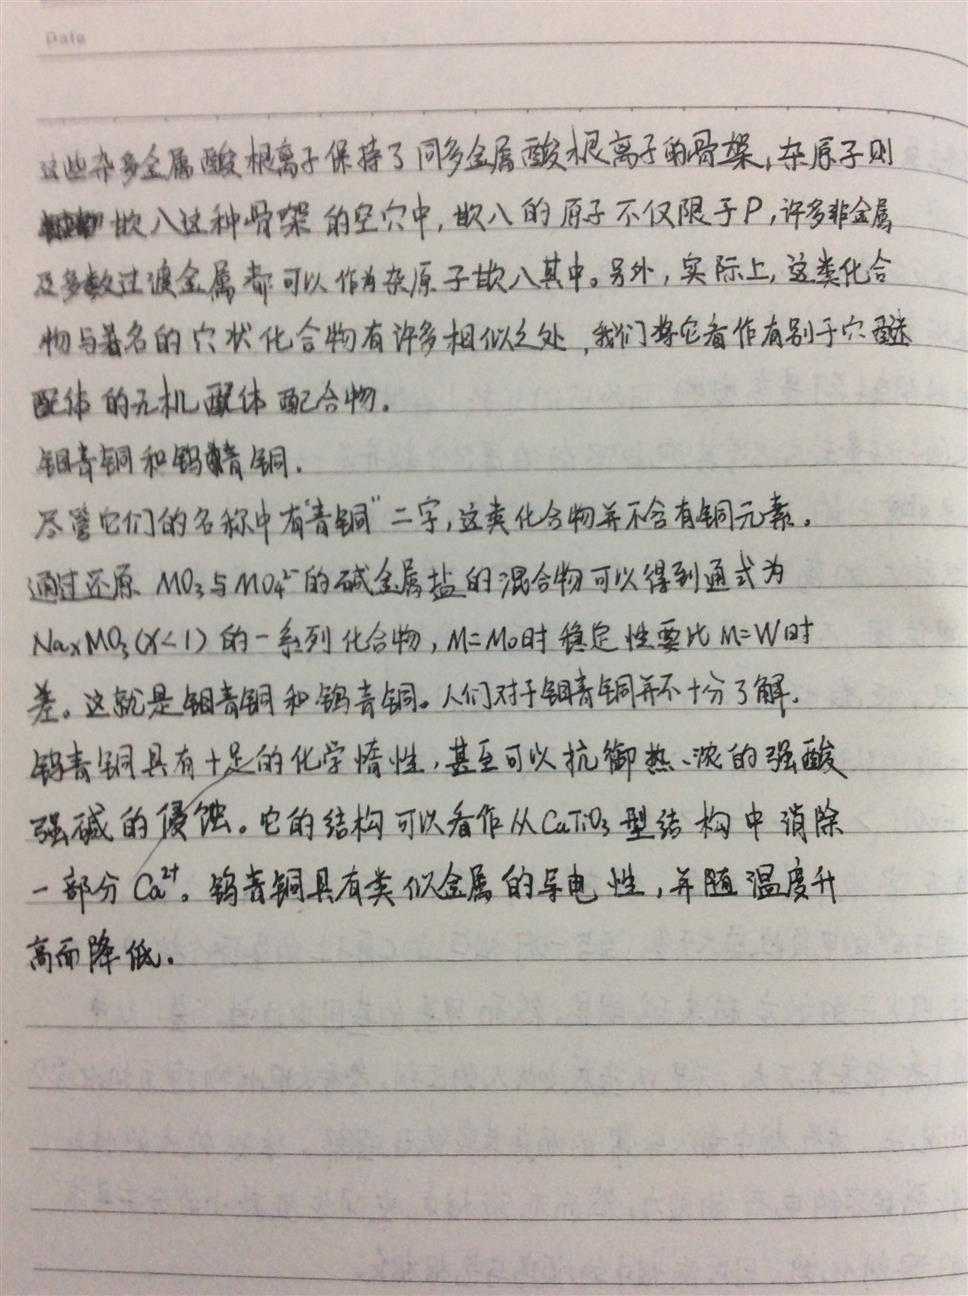 Date
这些杂多金属酸根离子保持了同多金属酸根离子的骨架，杂原子则
嵌入这种骨架的空穴中，嵌入的原子不仅限于P，许多非金属
及多数过渡金属都可以作为杂原子嵌入其中。另外，实际上，这类化合
物与著名的穴状化合物有许多相似之处，我们将它看作有别于穴醚
配体的无机配体配合物。
钼青铜和钨青铜.
尽管它们的名称中有"青铜"二字，这类化合物并不含有铜元素。
通过还原 MO₃与MO₄²⁻的碱金属盐的混合物可以得到通式为
NaxMO₃(x<1)的一系列化合物，M=Mo时稳定性要比M=W时
差。这就是钼青铜和钨青铜。人们对于钼青铜并不十分了解.
钨青铜具有十足的化学惰性，甚至可以抗御热、浓的强酸
强碱的侵蚀。它的结构可以看作从CaTiO₃型结构中消除
一部分Ca²⁺。钨青铜具有类似金属的导电性，并随温度升
高而降低.